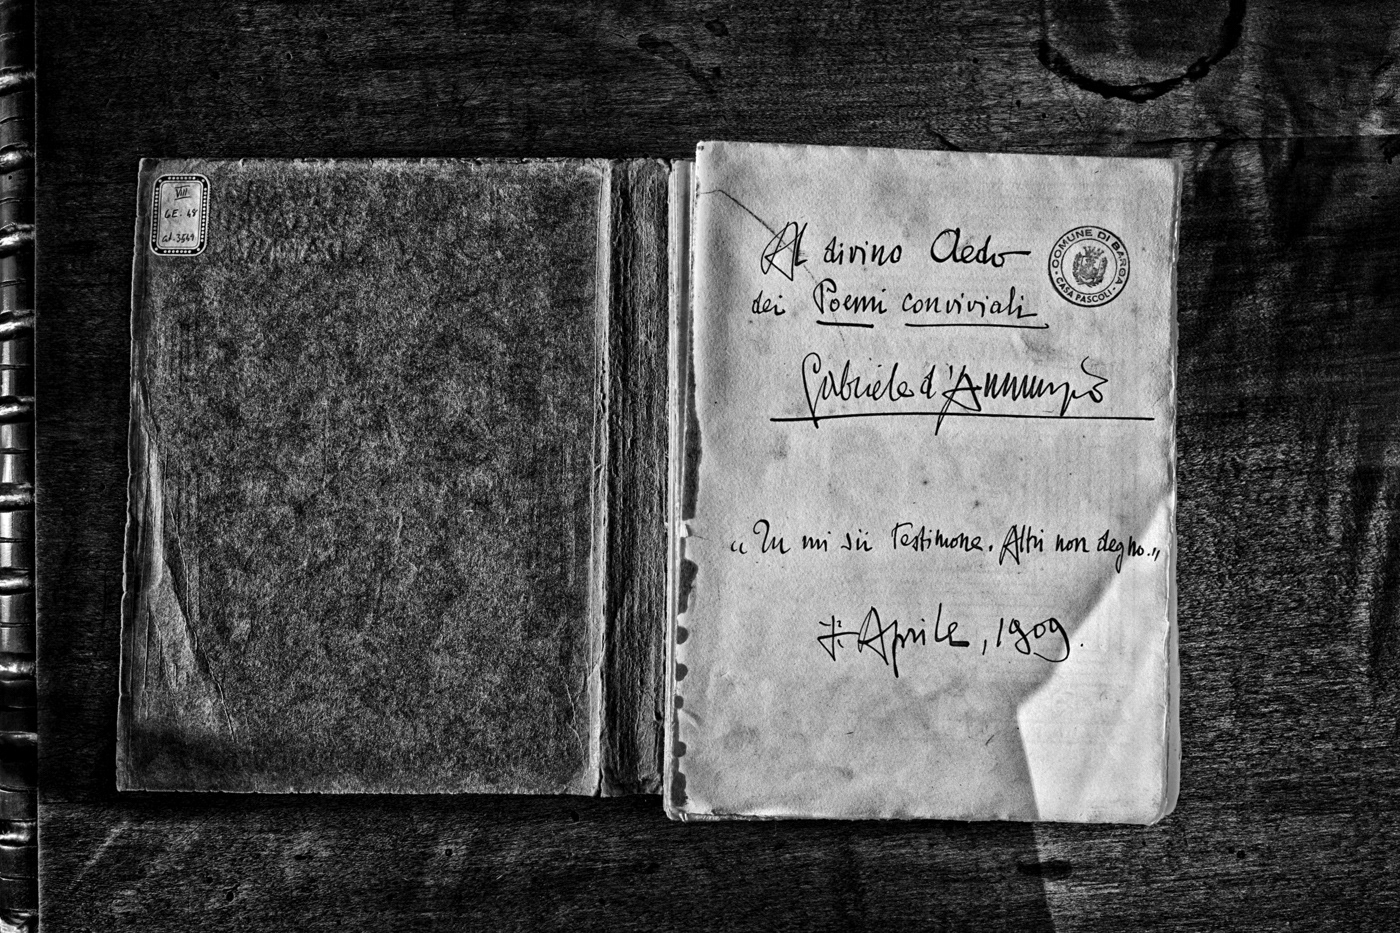 VIII
G.E. 48
al. 3549
Al divino Aedo
dei Poemi conviviali
COMUNE DI BARGA
CASA PASCOLI
Gabriele d'Annunzio
“Tu mi sii testimone. Altri non degno.„
7: Aprile, 1909.